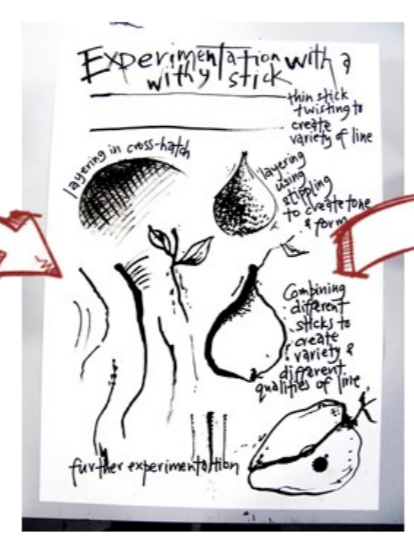 Experimentation with a
withy stick
thin stick
twisting to
create
variety of line
layering in cross-hatch
layering
using
stippling
to create tone
& form
Combining
different
sticks to
create
variety &
different
qualities of line
further experimentation